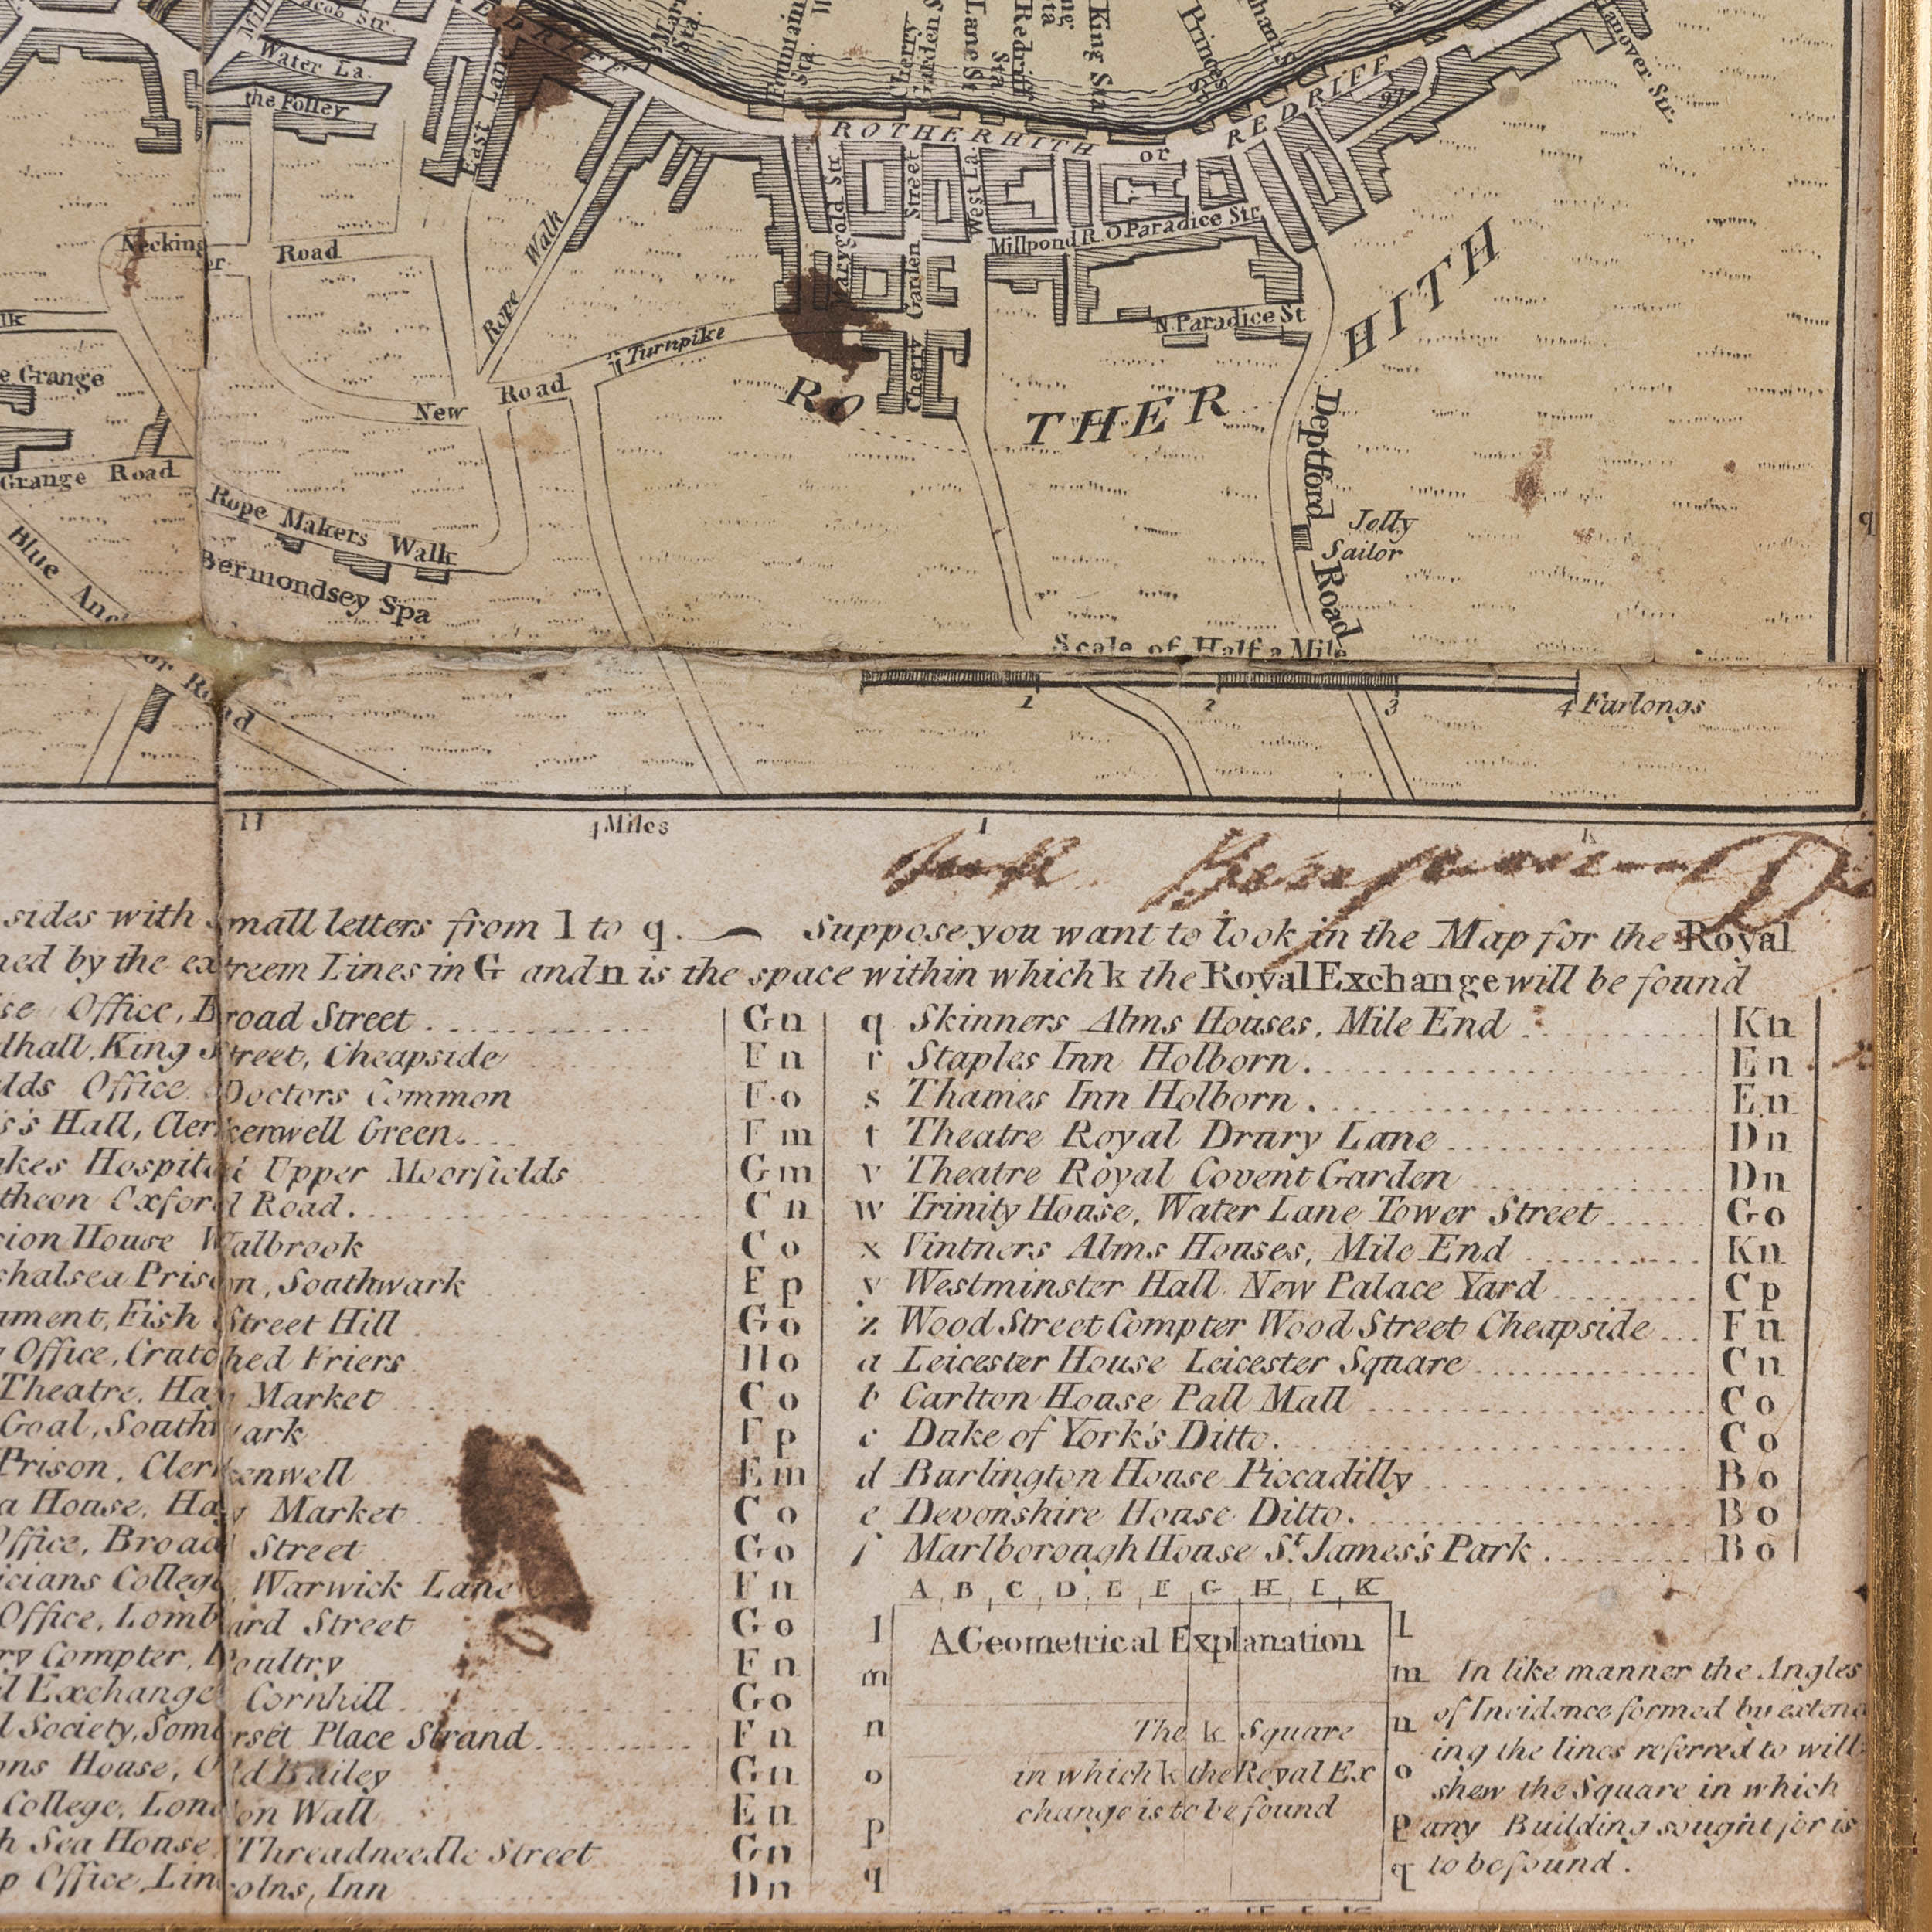 Jacob Str.
Water La.
the Folley
East Lane
REDRIFF
Fountain Sta.
Cherry Garden S
Lane St
Redriff Sta
King Sta
Princes St
Hanover Str.
ROTHERHITH or REDRIFF
Marygold Str.
Cherry Garden Street
West La.
Millpond R.O Paradice Str.
N. Paradice St
Necking er Road
Rope Walk
Turnpike
New Road
e Grange
Grange Road
RO THER HITH
Deptford Road
Jolly Sailor
Rope Makers Walk
Bermondsey Spa
Blue Anchor Road
q
Scale of Half a Mile
1 2 3 4 Furlongs
H 4 Miles I K
sides with small letters from l to q. — Suppose you want to look in the Map for the Royal
ned by the extreem Lines in G and n is the space within which k the Royal Exchange will be found
se Office, Broad Street Gn
dhall, King Street, Cheapside Fn
lds Office Doctors Common F.o
s's Hall, Clerkenwell Green. Fm
kes Hospital Upper Moorfields Gm
theon Oxford Road. Cn
sion House Walbrook Co
shalsea Prison, Southwark Fp
ument, Fish Street Hill Go
Office, Crutched Friers Ho
Theatre, Hay Market Co
Goal, Southwark Fp
Prison, Clerkenwell Em
a House, Hay Market Co
Office, Broad Street Go
icians College Warwick Lane Fn
Office, Lombard Street Go
ry Compter, Poultry Fn
l Exchange Cornhill Go
l Society, Somerset Place Strand Fn
ons House, Old Bailey Gn
College, London Wall En
h Sea House Threadneedle Street Gn
p Office, Lincolns, Inn Dn
q Skinners Alms Houses, Mile End Kn
r Staples Inn Holborn. En
s Thames Inn Holborn. En
t Theatre Royal Drury Lane Dn
v Theatre Royal Covent Garden Dn
w Trinity House, Water Lane Tower Street Go
x Vintners Alms Houses, Mile End Kn
y Westminster Hall New Palace Yard Cp
z Wood Street Compter Wood Street Cheapside Fn
a Leicester House Leicester Square Cn
b Carlton House Pall Mall Co
c Duke of York's Ditto. Co
d Burlington House Piccadilly Bo
e Devonshire House Ditto. Bo
f Marlborough House St. James's Park Bo
A B C D E F G H I K
l A Geometrical Explanation l
m m
n The k Square n
o in which k the Royal Ex o
change is to be found
p p
q q
In like manner the Angles
of Incidence formed by extend
ing the lines referred to will
shew the Square in which
any Building sought for is
to be found.